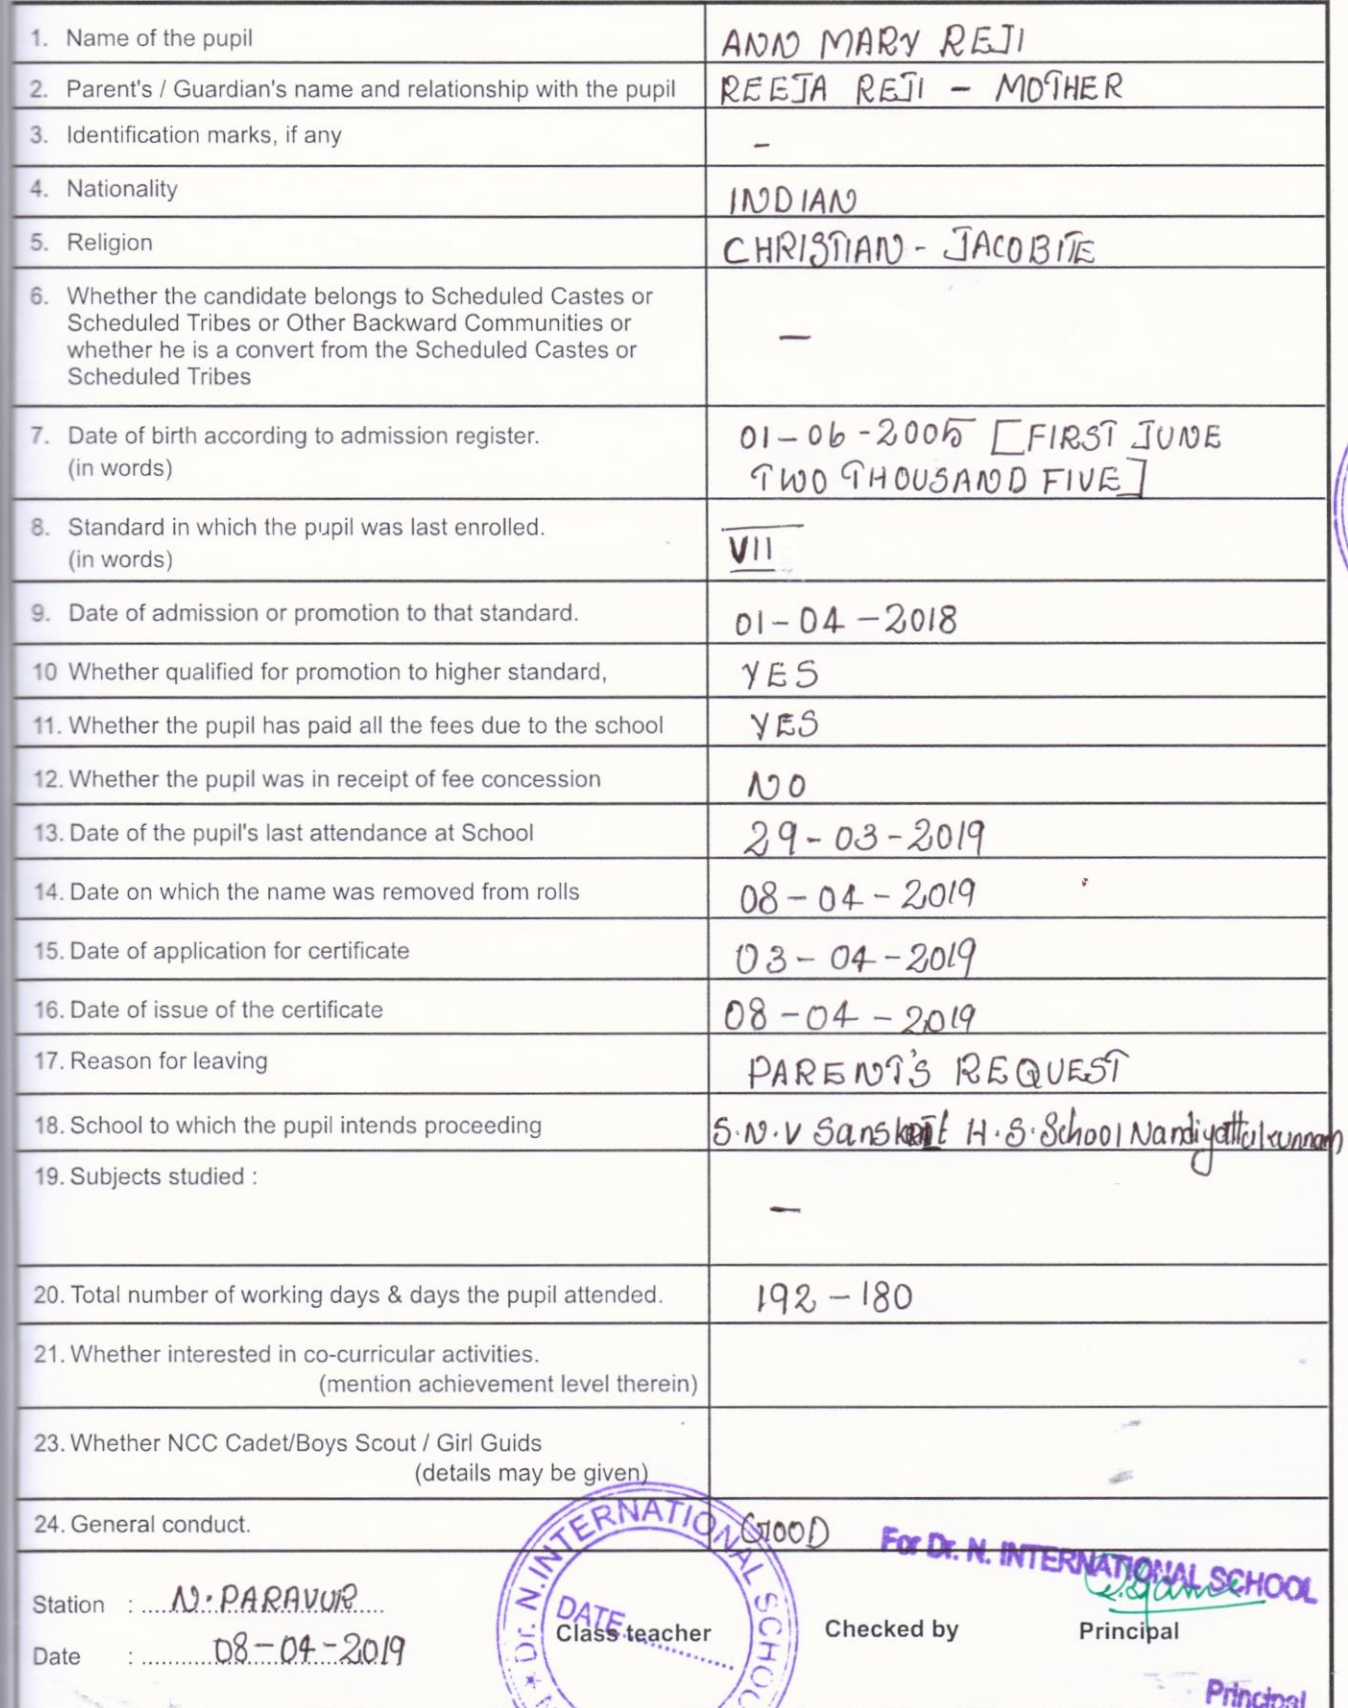 1. Name of the pupil ANN MARY REJI
2. Parent's / Guardian's name and relationship with the pupil REEJA REJI - MOTHER
3. Identification marks, if any -
4. Nationality INDIAN
5. Religion CHRISTIAN - JACOBITE
6. Whether the candidate belongs to Scheduled Castes or
Scheduled Tribes or Other Backward Communities or
whether he is a convert from the Scheduled Castes or
Scheduled Tribes
—
7. Date of birth according to admission register. 01-06-2005 [FIRST JUNE
(in words) TWO THOUSAND FIVE]
8. Standard in which the pupil was last enrolled. VII
(in words)
9. Date of admission or promotion to that standard. 01-04-2018
10 Whether qualified for promotion to higher standard, YES
11. Whether the pupil has paid all the fees due to the school YES
12. Whether the pupil was in receipt of fee concession NO
13. Date of the pupil's last attendance at School 29-03-2019
14. Date on which the name was removed from rolls 08-04-2019
15. Date of application for certificate 03-04-2019
16. Date of issue of the certificate 08-04-2019
17. Reason for leaving PARENT'S REQUEST
18. School to which the pupil intends proceeding S.N.V Sanskrit H.S.School Nandiyattukunnam
19. Subjects studied : —
20. Total number of working days & days the pupil attended. 192 - 180
21. Whether interested in co-curricular activities.
(mention achievement level therein)
23. Whether NCC Cadet/Boys Scout / Girl Guids
(details may be given)
24. General conduct. GOOD
For Dr. N. INTERNATIONAL SCHOOL
Dr. N. INTERNATIONAL SCHOOL
DATE
Station : N. PARAVUR
Class teacher Checked by Principal
Date : 08-04-2019
Principal